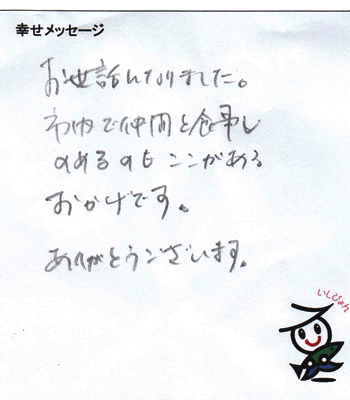 幸せメッセージ
お世話になりました。
市内で仲間と食事し
のめるのも ここがある
おかげです。
ありがとうございます。
いしぴょん